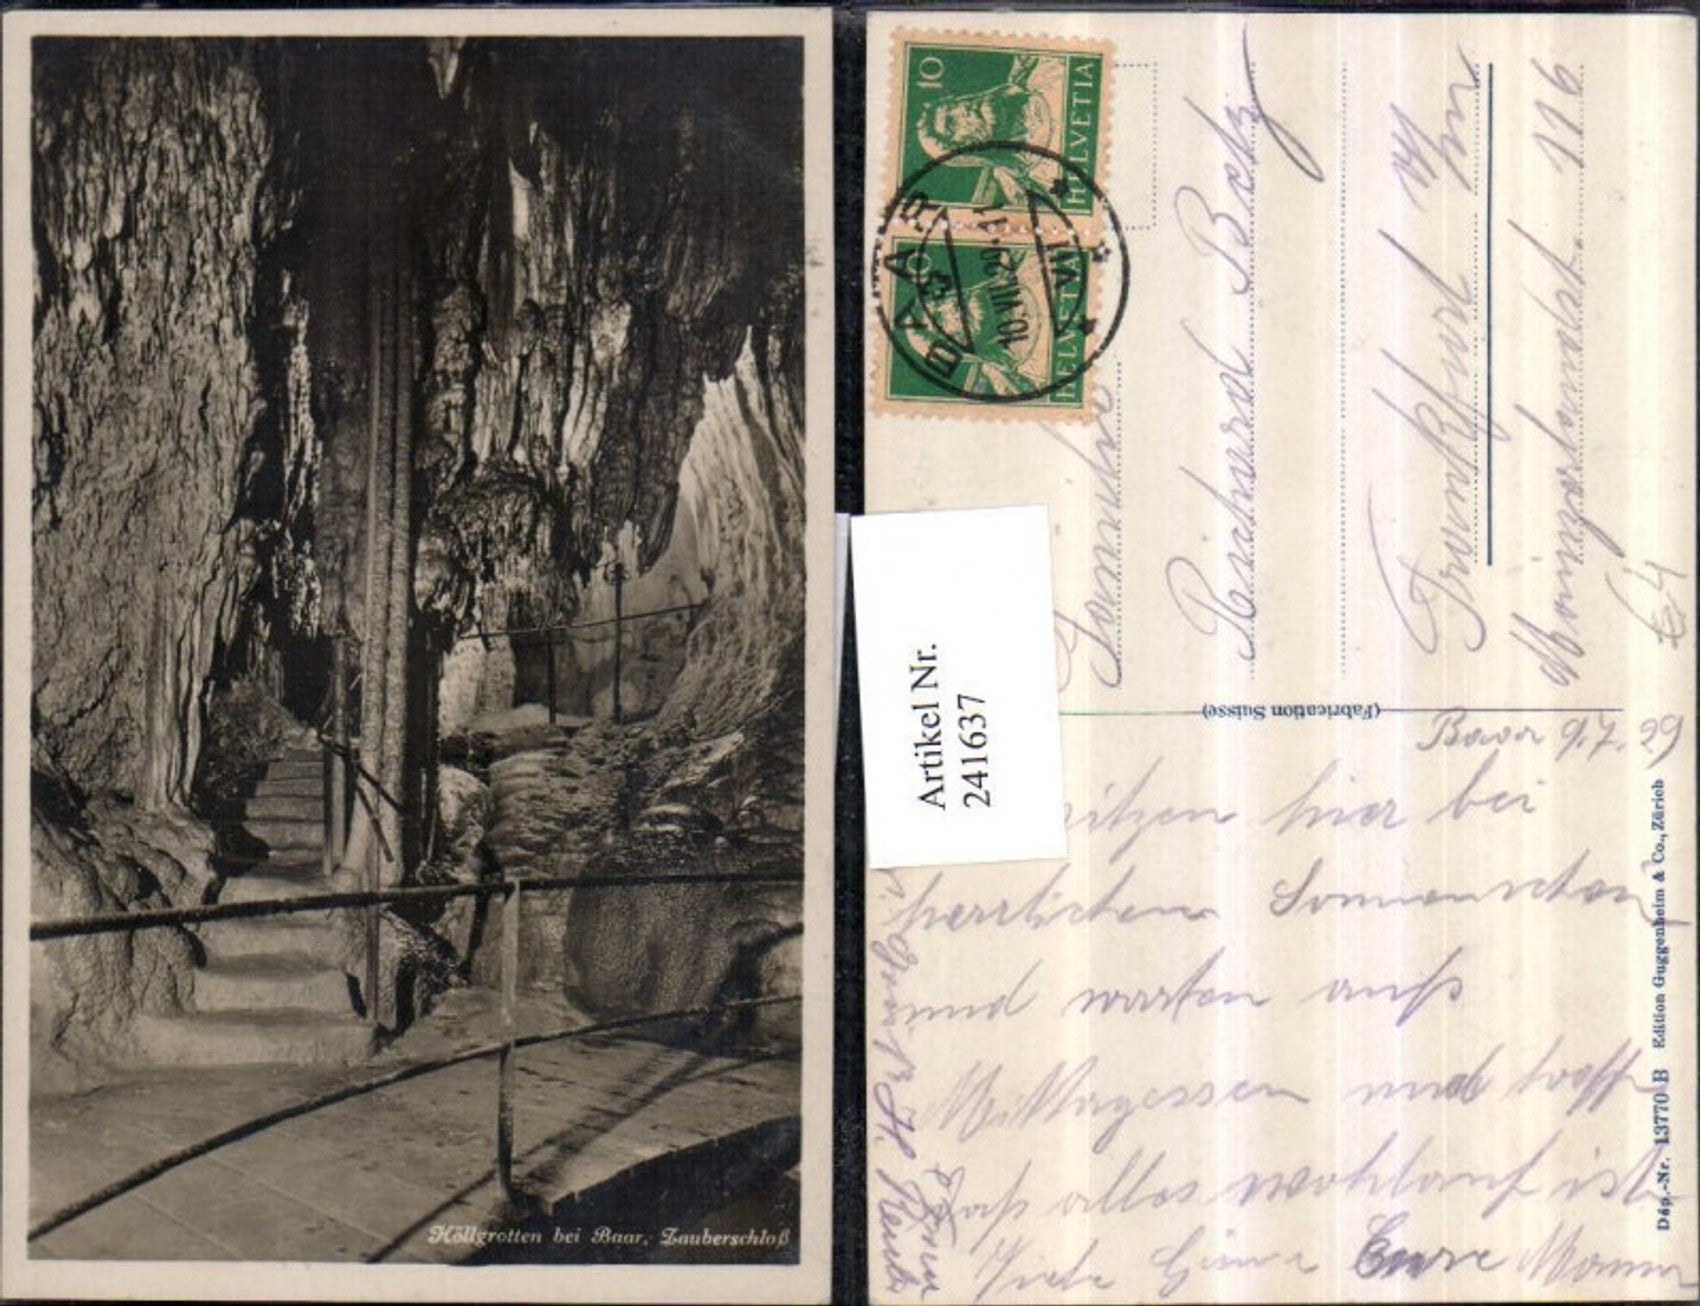 Höllgrotten bei Baar, Zauberschloß
10 HELVETIA
10 HELVETIA
BAAR
10.VII.29.-11
VII
Artikel Nr.
241637
Familie
Richard Betz
Frankfurt a/m
Mainzerlandstr. 116
€4
(Fabrication Suisse)
Baar 9.7.29
sitzen hier bei
herrlichem Sonnenschein
und warten aufs
Mittagessen und hoffe
daß alles wohlauf ist
Viele Eure
Dép.-Nr. 13770 B Edition Guggenheim & Co., Zürich